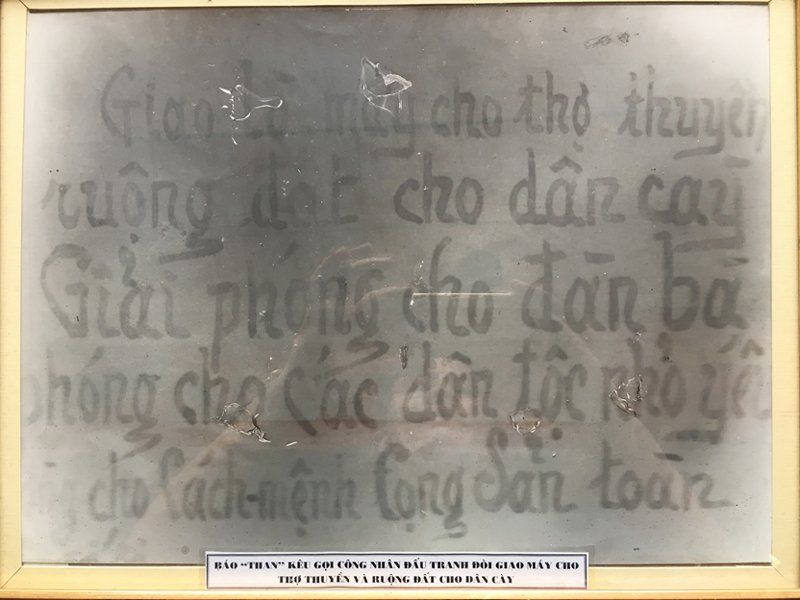 Giao lò máy cho thợ thuyền
ruộng đat cho dân cày
Giải phóng cho đàn bà
phóng cho các dân tộc nhỏ yếu
cho Cách-mệnh Cọng Sản toàn
BÁO “THAN” KÊU GỌI CÔNG NHÂN ĐẤU TRANH ĐÒI GIAO MÁY CHO
THỢ THUYỀN VÀ RUỘNG ĐẤT CHO DÂN CÀY